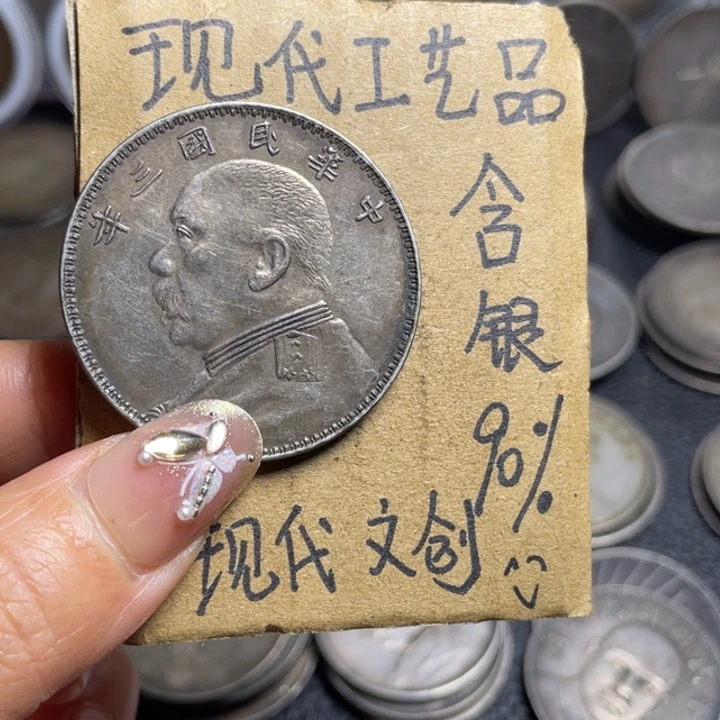 现代工艺品
含
银
90%
现代文创
中華民國三年